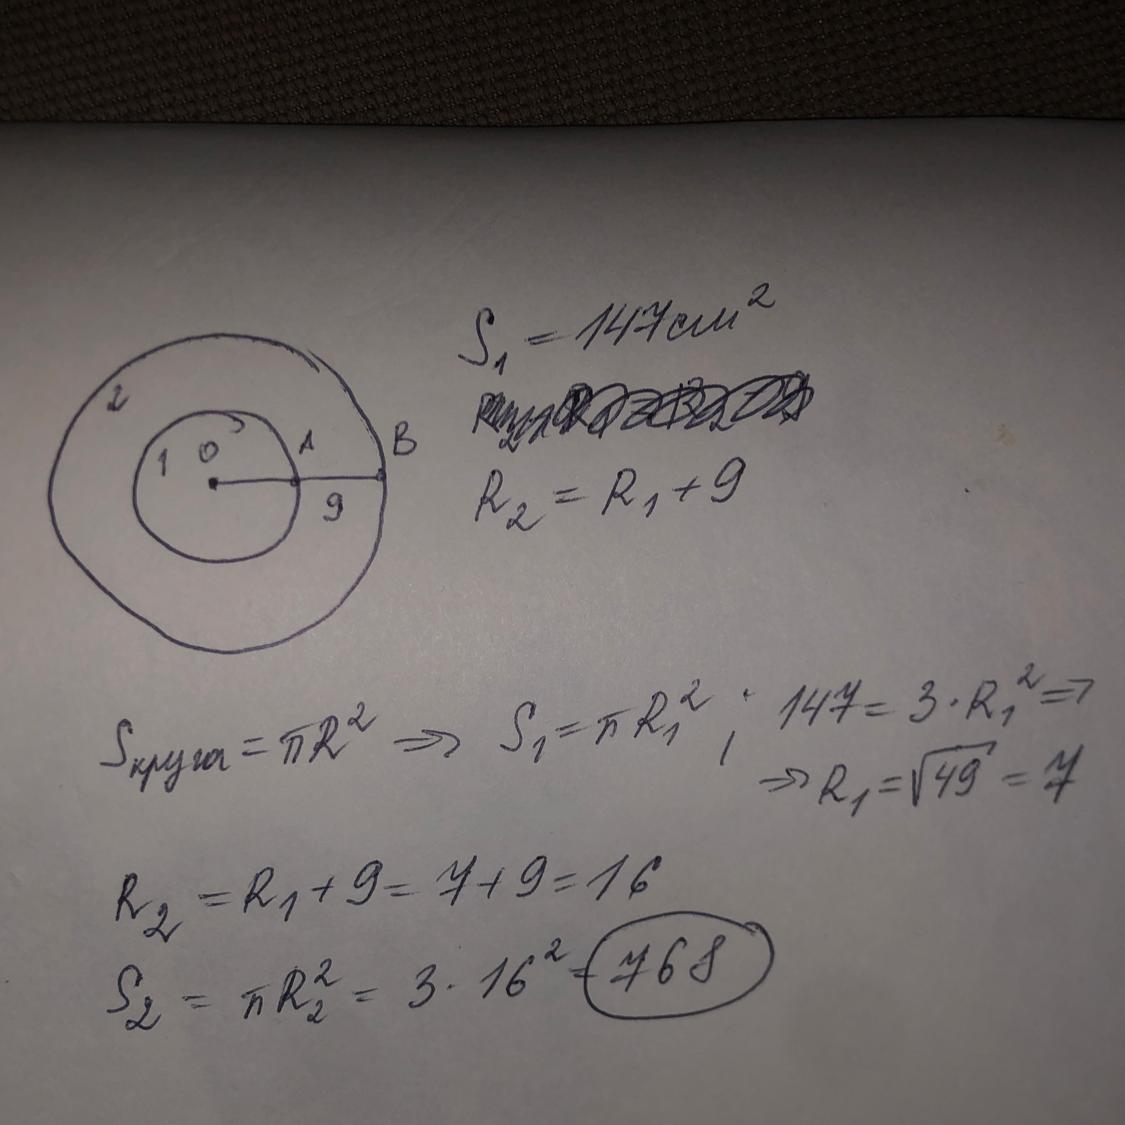 S₁ = 147 см²
R₂ = R₁ + 9
2
1
O
A
B
9
Sкруга = πR² => S₁ = πR₁² ; 147 = 3 · R₁² =>
=> R₁ = √49 = 7
R₂ = R₁ + 9 = 7 + 9 = 16
S₂ = πR₂² = 3 · 16² = 768